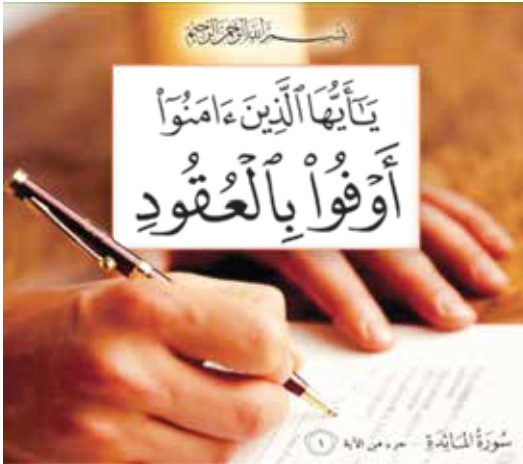 بسم الله الرحمن الرحيم
يَٰٓأَيُّهَا ٱلَّذِينَ ءَامَنُوٓا۟
أَوْفُوا۟ بِٱلْعُقُودِ
سُورَةُ المَائِدَةِ - جزء من الآية ١